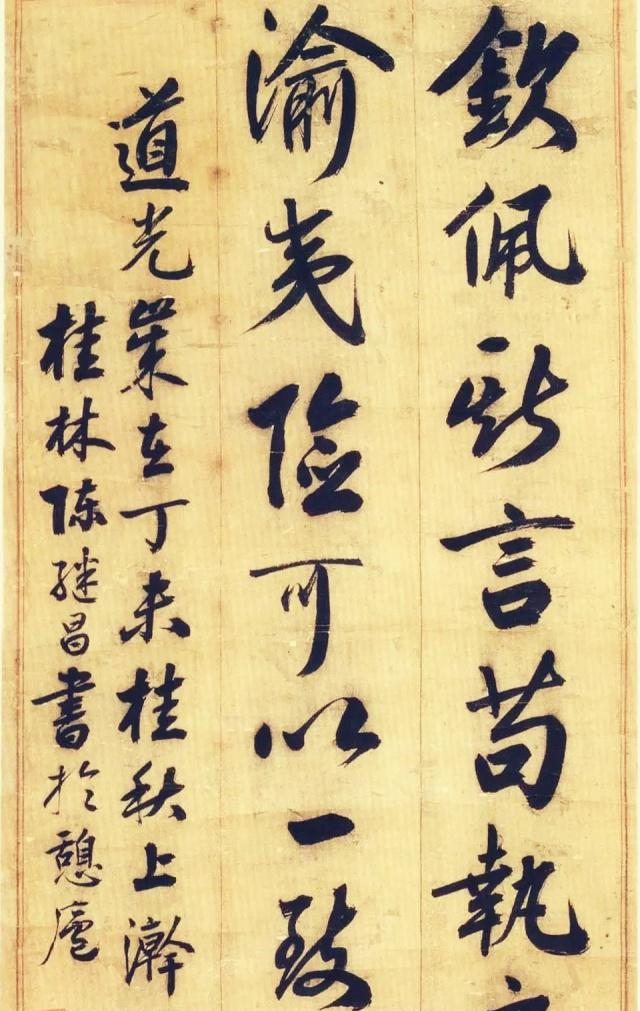 欽佩斯言苟執
渝夷險可以一致
道光歲在丁未桂秋上澣
桂林陳繼昌書於憩廬